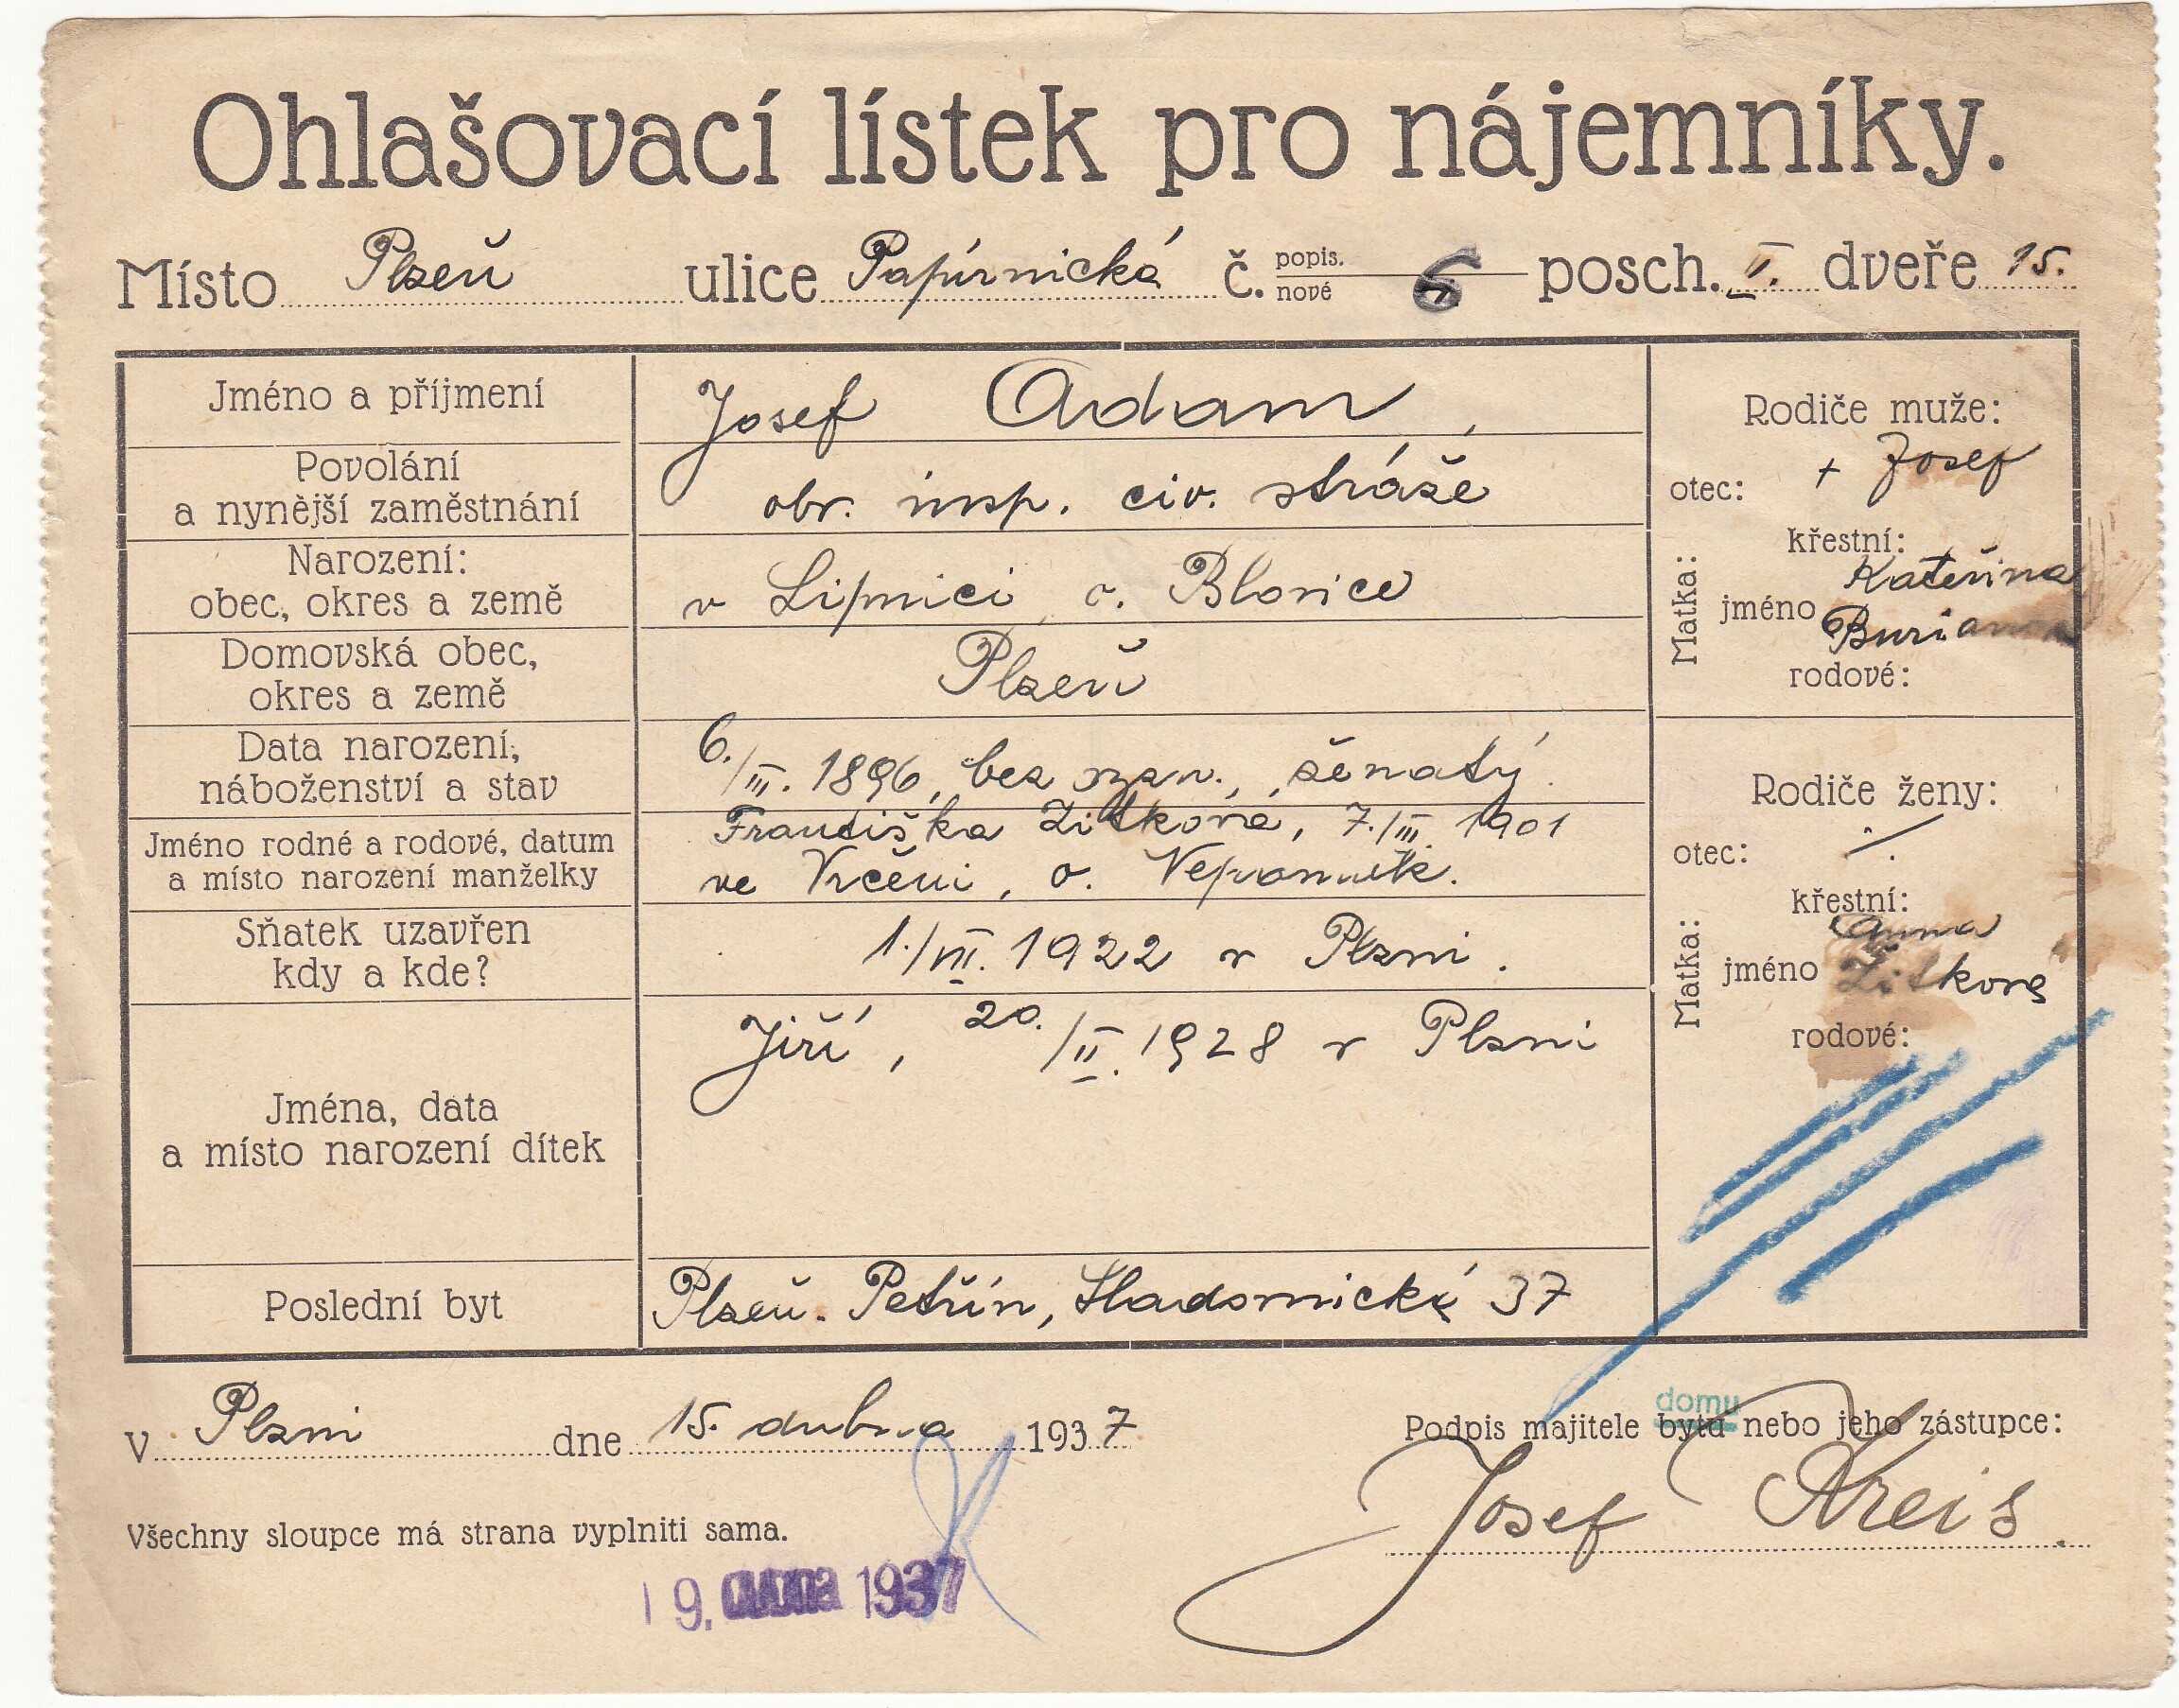 Ohlašovací lístek pro nájemníky.
Místo Plzeň ulice Papírnická č. popis. nové 6 posch. II. dveře 15.
Jméno a příjmení
Josef Adam,
Povolání
a nynější zaměstnání
obv. insp. civ. stráže
Narození:
obec, okres a země
v Lipnici, o. Blovice
Domovská obec,
okres a země
Plzeň
Data narození,
náboženství a stav
6./III. 1896, bez vyzn., ženatý.
Jméno rodné a rodové, datum
a místo narození manželky
Františka Žitková, 7./III. 1901
ve Vrčeni, o. Nepomuk.
Sňatek uzavřen
kdy a kde?
1922 v Plzni.
Jména, data
a místo narození dítek
Jiří, 20./II. 1928 v Plzni
Poslední byt
Plzeň. Petřín, 37
Rodiče muže:
otec: + Josef
Matka:
křestní:
Kateřina
jméno
rodové:
Rodiče ženy:
otec: ./.
Matka:
křestní:
Anna
jméno Žitková
rodové:
V Plzni dne 15. dubna 1937
domu
Podpis majitele bytu nebo jeho zástupce:
Josef Kreis
Všechny sloupce má strana vyplniti sama.
19. dubna 1937